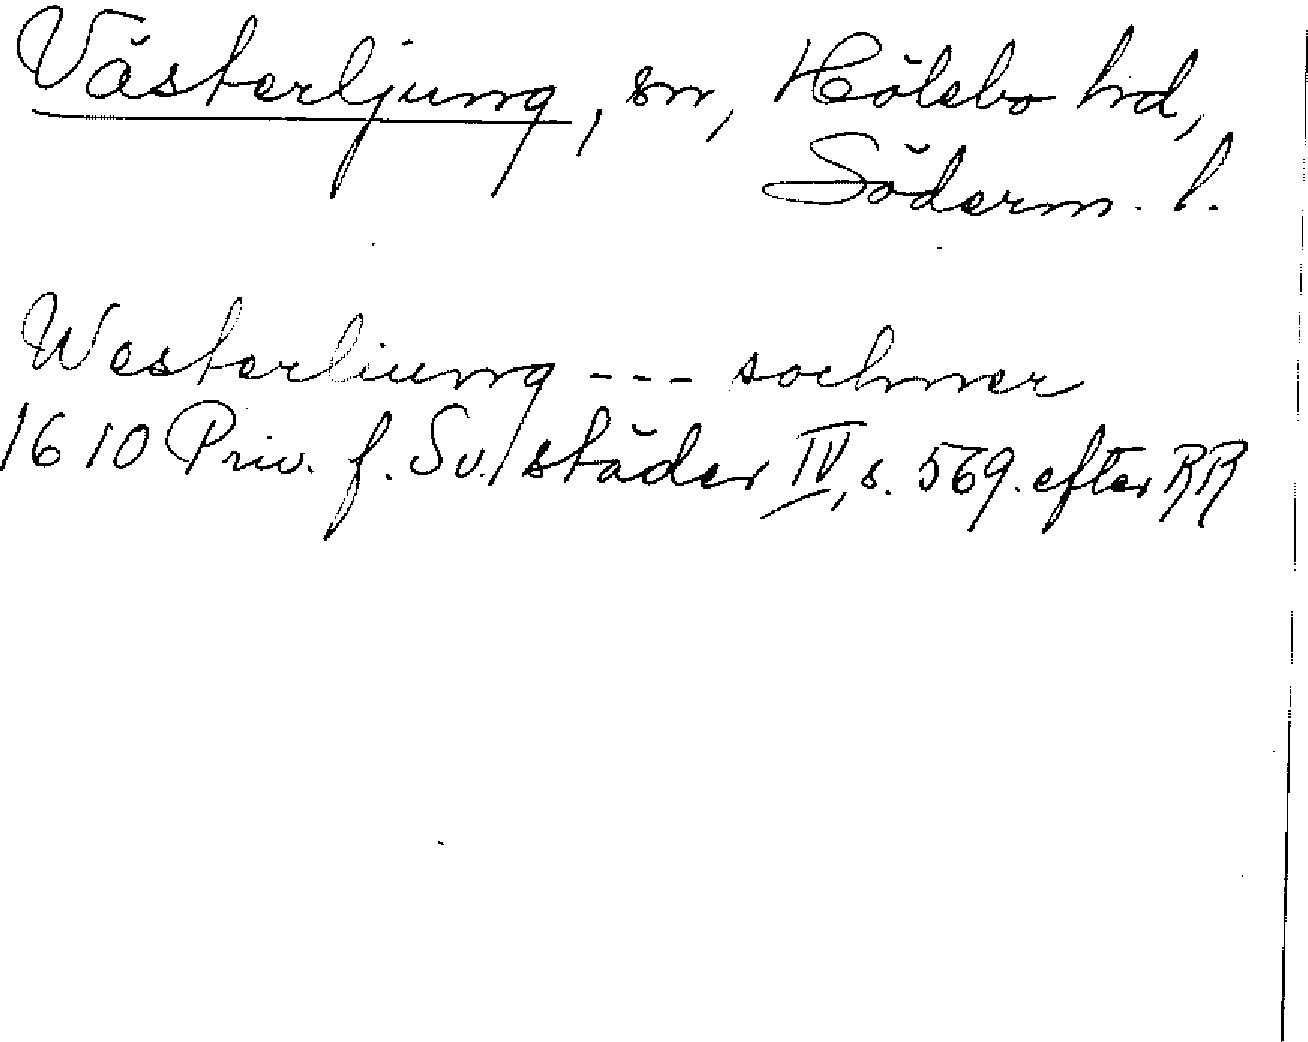 Västerljung, sn, Hölebo hd,
Söderm. l.
Westerliung --- sochner
1610 Priv. f. Sv. städer IV, s. 569. efter RR